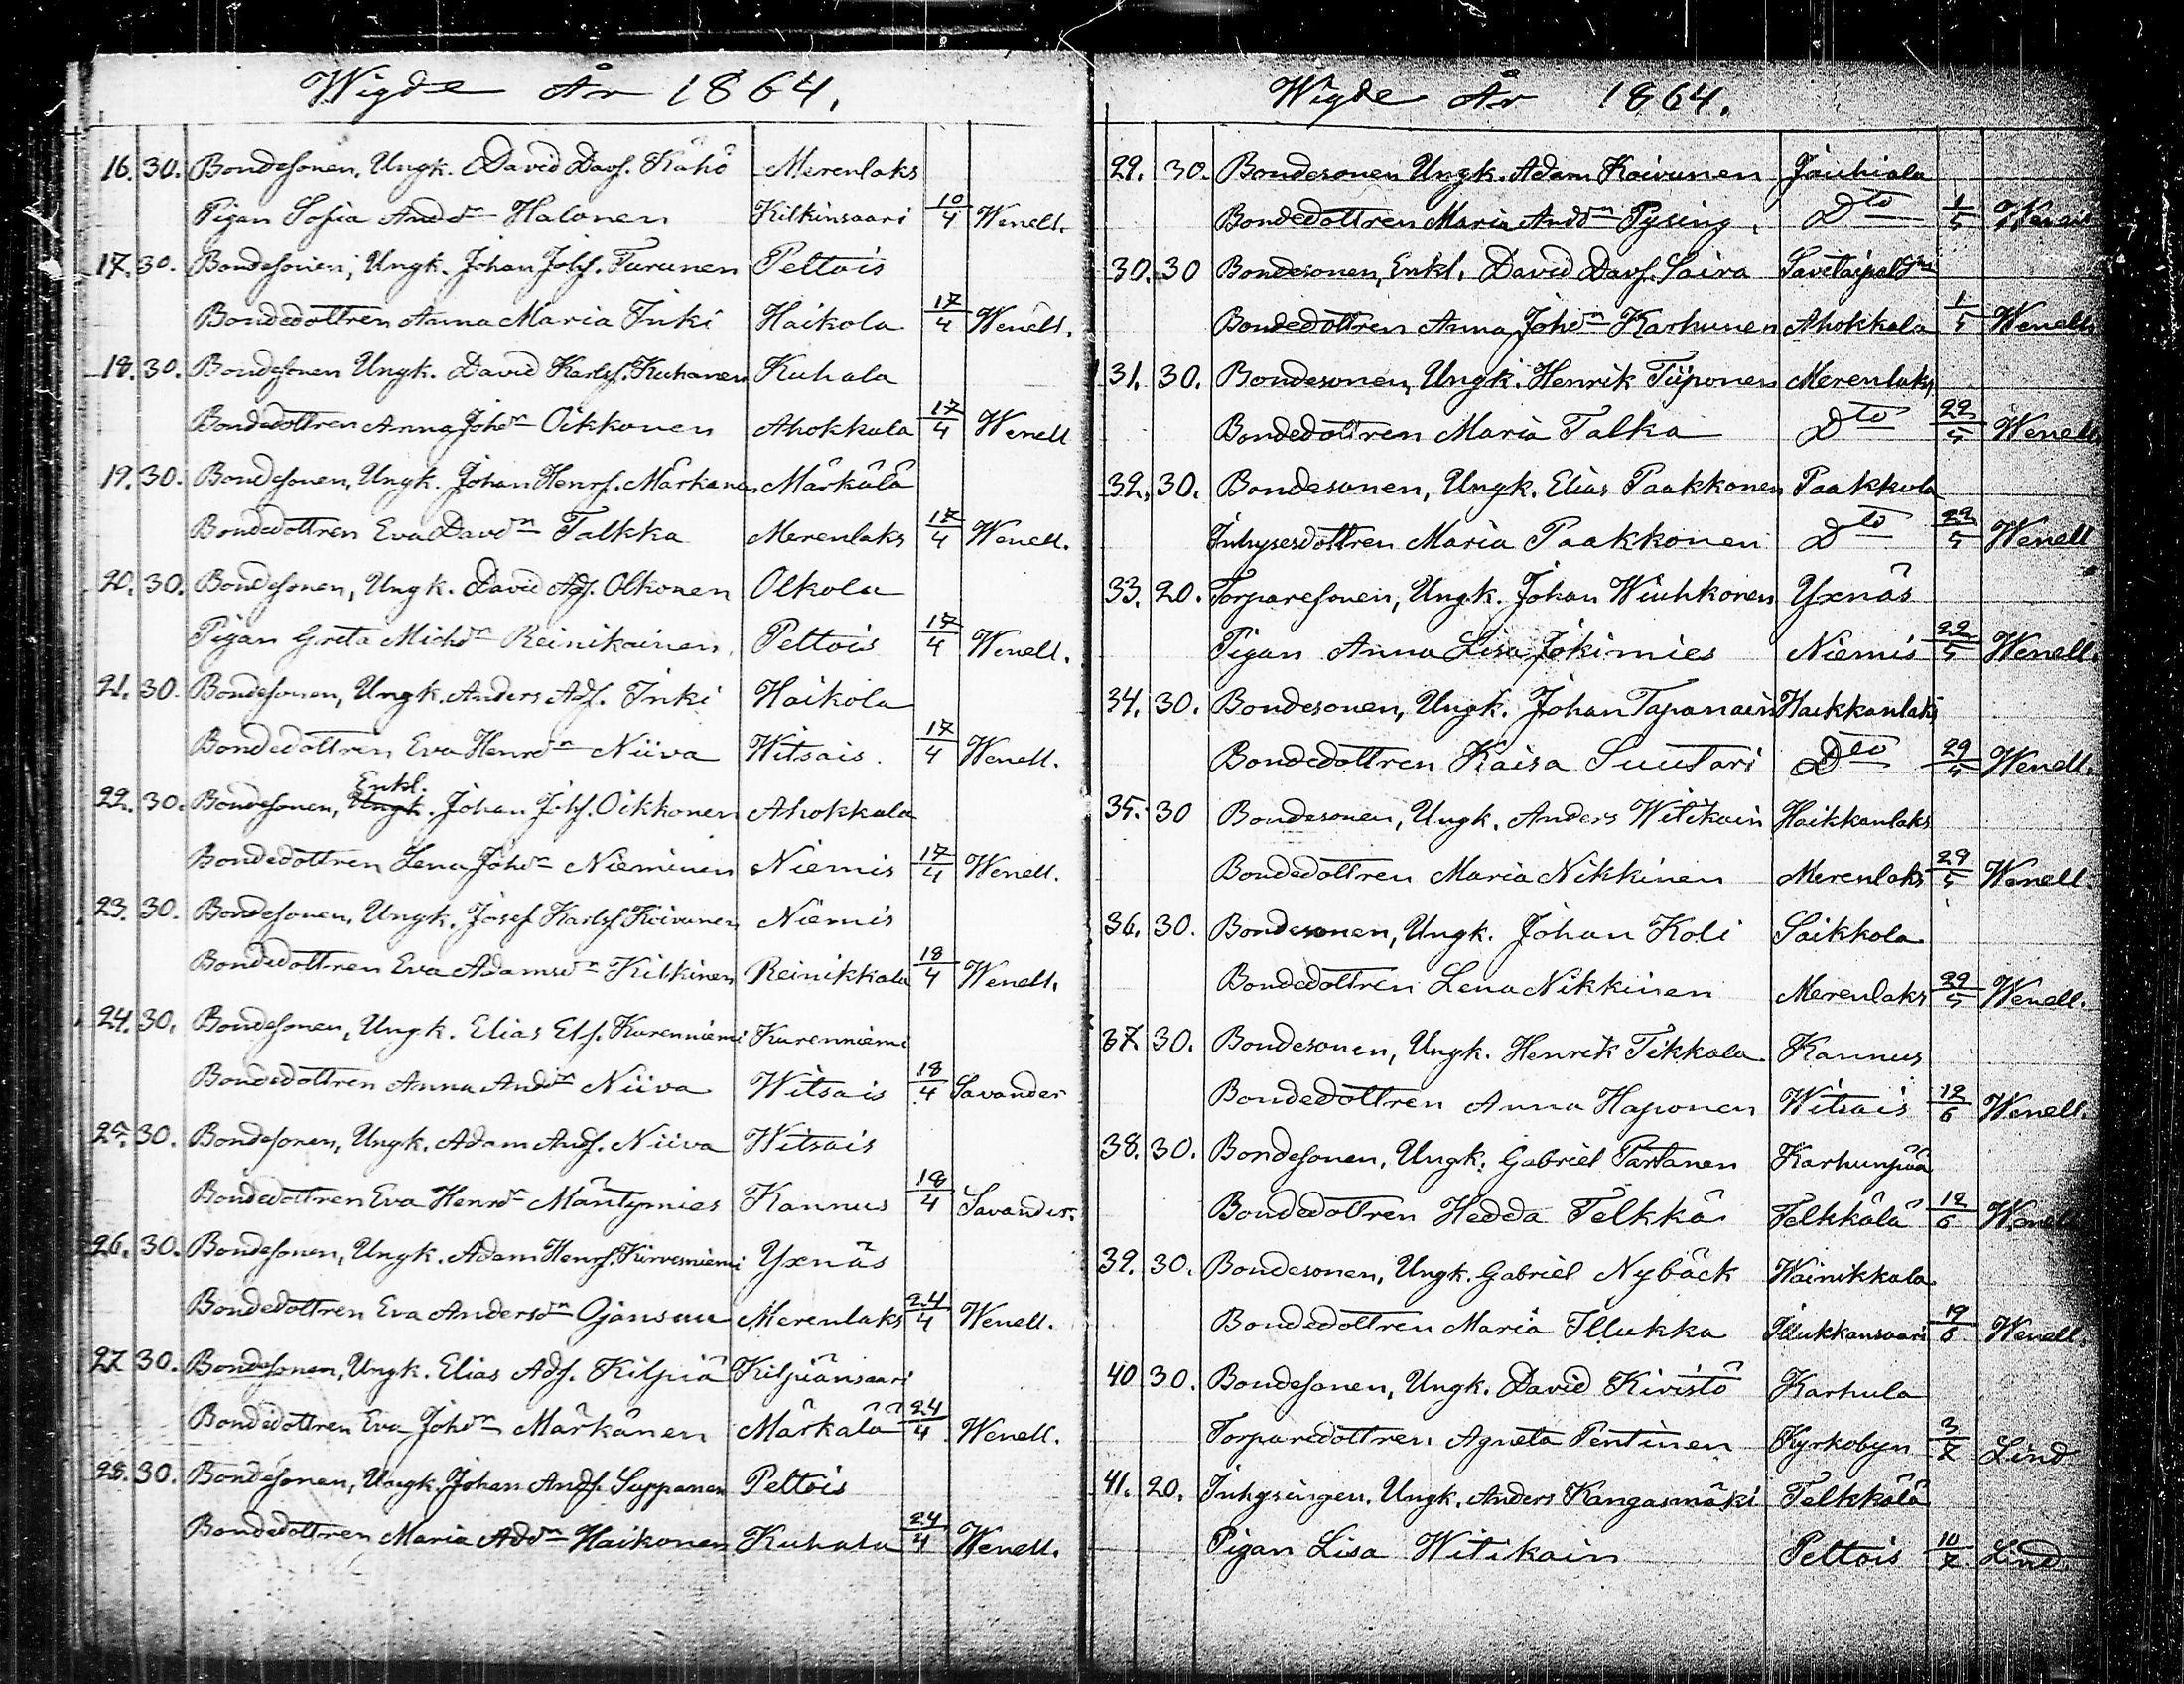 Wigde År 1864.
16. 30. Bondesonen, Ungk. David Davs. Kähö Merenlaks
Pigan Sofia Andd:n Halonen Kilkinsaari 10/4 Wenell.
17. 30. Bondesonen, Ungk. Johan Johs. Turunen Peltois
Bondedottren Anna Maria Inki Haikola 17/4 Wenell.
18. 30. Bondesonen Ungk. David Karls. Kuhanen Kuhala
Bondedottren Anna Johd:n Oikkonen Ahokkala 17/4 Wenell
19. 30. Bondesonen, Ungk. Johan Henrs. Märkänen Märkälä
Bondedottren Eva Davd:n Talkka Merenlaks 17/4 Wenell.
20. 30. Bondesonen, Ungk. David Ads. Olkonen Olkola
Pigan Greta Michd:n Reinikainen Peltois 17/4 Wenell.
21. 30. Bondesonen, Ungk. Anders Ads. Inki Haikola
Bondedottren Eva Henrd:n Niiva Witsais. 17/4 Wenell.
Enkl.
22. 30. Bondesonen, Ungk. Johan Johs. Oikkonen Ahokkala
Bondedottren Lena Johd:n Nieminen Niemis 17/4 Wenell.
23. 30. Bondesonen, Ungk. Josef Karls. Koivunen Niemis
Bondedottren Eva Adamsd:n Kilkinen Reinikkala 18/4 Wenell.
24. 30. Bondesonen, Ungk. Elias Els. Kurenniemi Kurenniemi
Bondedottren Anna Andd:n Niiva Witsais 18/4 Savander
25. 30. Bondesonen, Ungk. Adam Ands. Niiva Witsais
Bondedottren Eva Henrd:n Mäntymies Kannus 18/4 Savander.
26. 30. Bondesonen, Ungk. Adam Henrs. Kirvesniemi Yxnäs
Bondedottren Eva Andersd:n Ojansuu Merenlaks 24/4 Wenell.
27 30. Bondesonen, Ungk. Elias Ads. Kilpiä Kilpiänsaari
Bondedottren Eva Johd:n Märkänen Märkälä 24/4 Wenell.
28. 30. Bondesonen, Ungk. Johan Ands. Suppanen Peltois
Bondedottren Maria Add:n Haikonen Kuhala 24/4 Wenell.
Wigde År 1864.
29. 30. Bondesonen Ungk. Adam Koivunen Jäuhiala
Bondedottren Maria Andd:n Pysing. D:to 1/5 Wenell
30. 30 Bondesonen, Enkl. David Davs. Saira Savitaipal
Bondedottren Anna Johd:n Karhunen Ahokkala 1/5 Wenell
31. 30. Bondesonen, Ungk. Henrik Tiiponen Merenlaks
Bondedottren Maria Talka D:to 22/5 Wenell
32. 30. Bondesonen, Ungk. Elias Paakkonen Paakkola
Inhysesdottren Maria Paakkonen D:to 22/5 Wenell
33. 20. Torparesonen, Ungk. Johan Wiuhkonen Yxnäs
Pigan Anna Lisa Jokimies Niemis 22/5 Wenell.
34. 30. Bondesonen, Ungk. Johan Tapanain Haikkanlaks
Bondedottren Kaisa Suutari D:to 29/5 Wenell.
35. 30 Bondesonen, Ungk. Anders Witikain Haikkanlaks
Bondedottren Maria Nikkinen Merenlaks 29/5 Wenell.
36. 30. Bondesonen, Ungk. Johan Koli Saikkola
Bondedottren Lena Nikkinen Merenlaks 29/5 Wenell.
37. 30. Bondesonen, Ungk. Henrik Tikkala Kannus
Bondedottren Anna Haponen Witsais 12/6 Wenell.
38. 30. Bondesonen, Ungk. Gabriel Partanen Karhunpää
Bondedottren Hedda Telkkä Telkkälä 12/6 Wenell
39. 30. Bondesonen, Ungk. Gabriel Nybäck Wainikkala
Bondedottren Maria Illukka Illukkansaari 19/6 Wenell.
40 30. Bondesonen, Ungk. David Kivistö Karhula
Torparedottren Agneta Pentinen Kyrkobyn 3/7 Lind
41. 20. Inhysingen, Ungk. Anders Kangasmäki Telkkälä
Pigan Lisa Witikain Peltois 10/7 Lind.